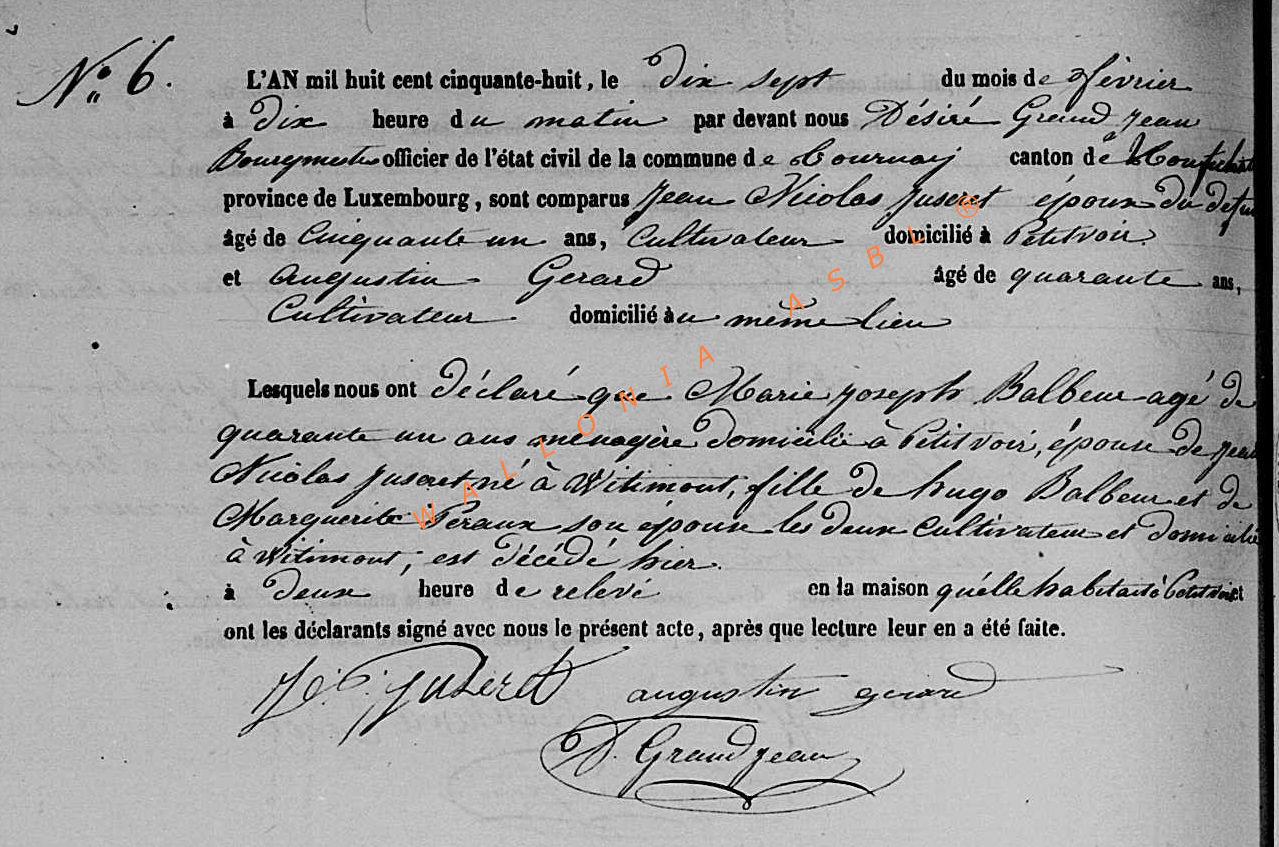 N° 6.
L'AN mil huit cent cinquante-huit, le dix sept du mois de février
à dix heure du matin par devant nous Désiré Grandjean
Bourgmestre officier de l'état civil de la commune de Tournay canton de
province de Luxembourg, sont comparus Jean Nicolas Juseret époux du defun
âgé de Cinquante un ans, Cultivateur domicilié à Petitvoir.
et Augustin Gerard âgé de quarante ans,
Cultivateur domicilié au même lieu
Lesquels nous ont déclaré que Marie joseph Balbeur agé de
quarante un ans ménagère domicilié à Petitvoir, épouse de jean
Nicolas Juseret né à Witimont, fille de hugo Balbeur et de
Marguerite Peraux son épouse les deux Cultivateur et domicilié
à Witimont, est décédé hier.
à deux heure de relevé en la maison qu'élle habitait à Petitvoir et
ont les déclarants signé avec nous le présent acte, après que lecture leur en a été faite.
Juseret augustin gerard
D. Grandjean
WALLONIA ASBL ®